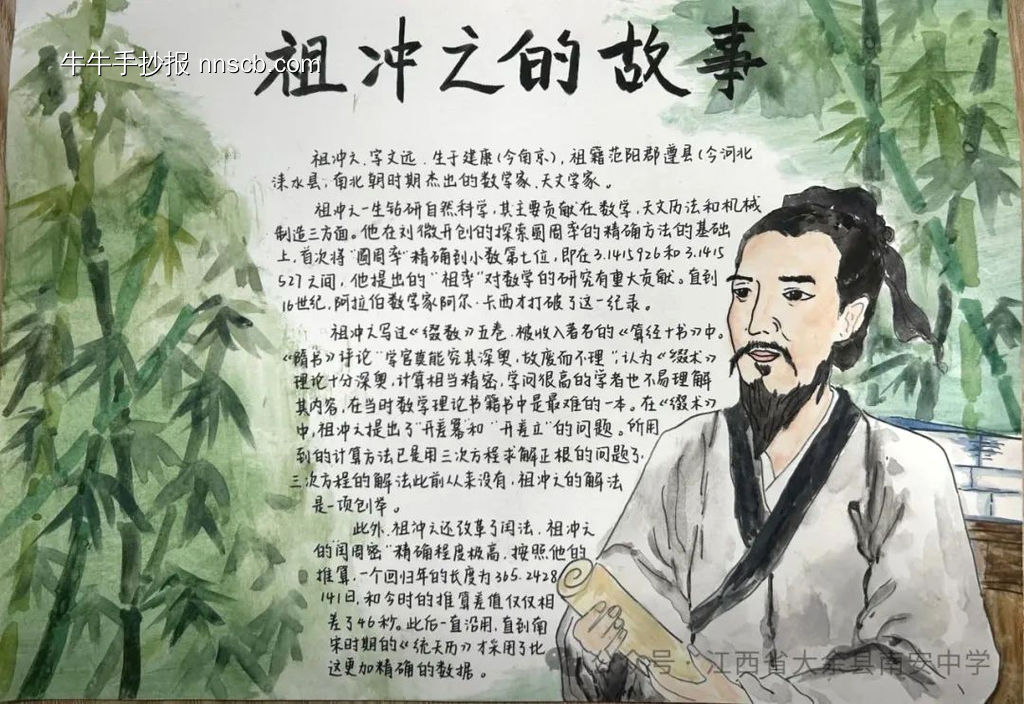 牛牛手抄报 nnscb.com
祖冲之的故事
祖冲之、字文远、生于建康(今南京),祖籍范阳郡遵县(今河北
涞水县,南北朝时期杰出的数学家、天文学家。
祖冲之一生钻研自然科学,其主要贡献在数学、天文历法和机械
制造三方面。他在刘徽开创的探索圆周率的精确方法的基础
上,首次将"圆周率"精确到小数第七位,即在3.1415926和3.1415
527之间,他提出的"祖率"对数学的研究有重大贡献。直到
16世纪,阿拉伯数学家阿尔·卡西才打破了这一纪录。
祖冲之写过《缀数》五卷,被收入著名的《算经十书》中。
《隋书》评论"学官莫能究其深奥,故废而不理",认为《缀术》
理论十分深奥,计算相当精密,学问很高的学者也不易理解
其内容,在当时数学理论书籍书中是最难的一本。在《缀术》
中,祖冲之提出了"开差幂"和"开差立"的问题。所用
到的计算方法已是用三次方程求解正根的问题了,
三次方程的解法此前从来没有,祖冲之的解法
是一项创举。
此外,祖冲之还改革了闰法,祖冲之
的闰周密"精确程度极高,按照他的
推算,一个回归年的长度为365.2428
141日,和今时的推算差值仅仅相
差了46秒。此后一直沿用,直到南
宋时期的《统天历》才采用了比
这更加精确的数据。
公众号·江西省大余县南安中学